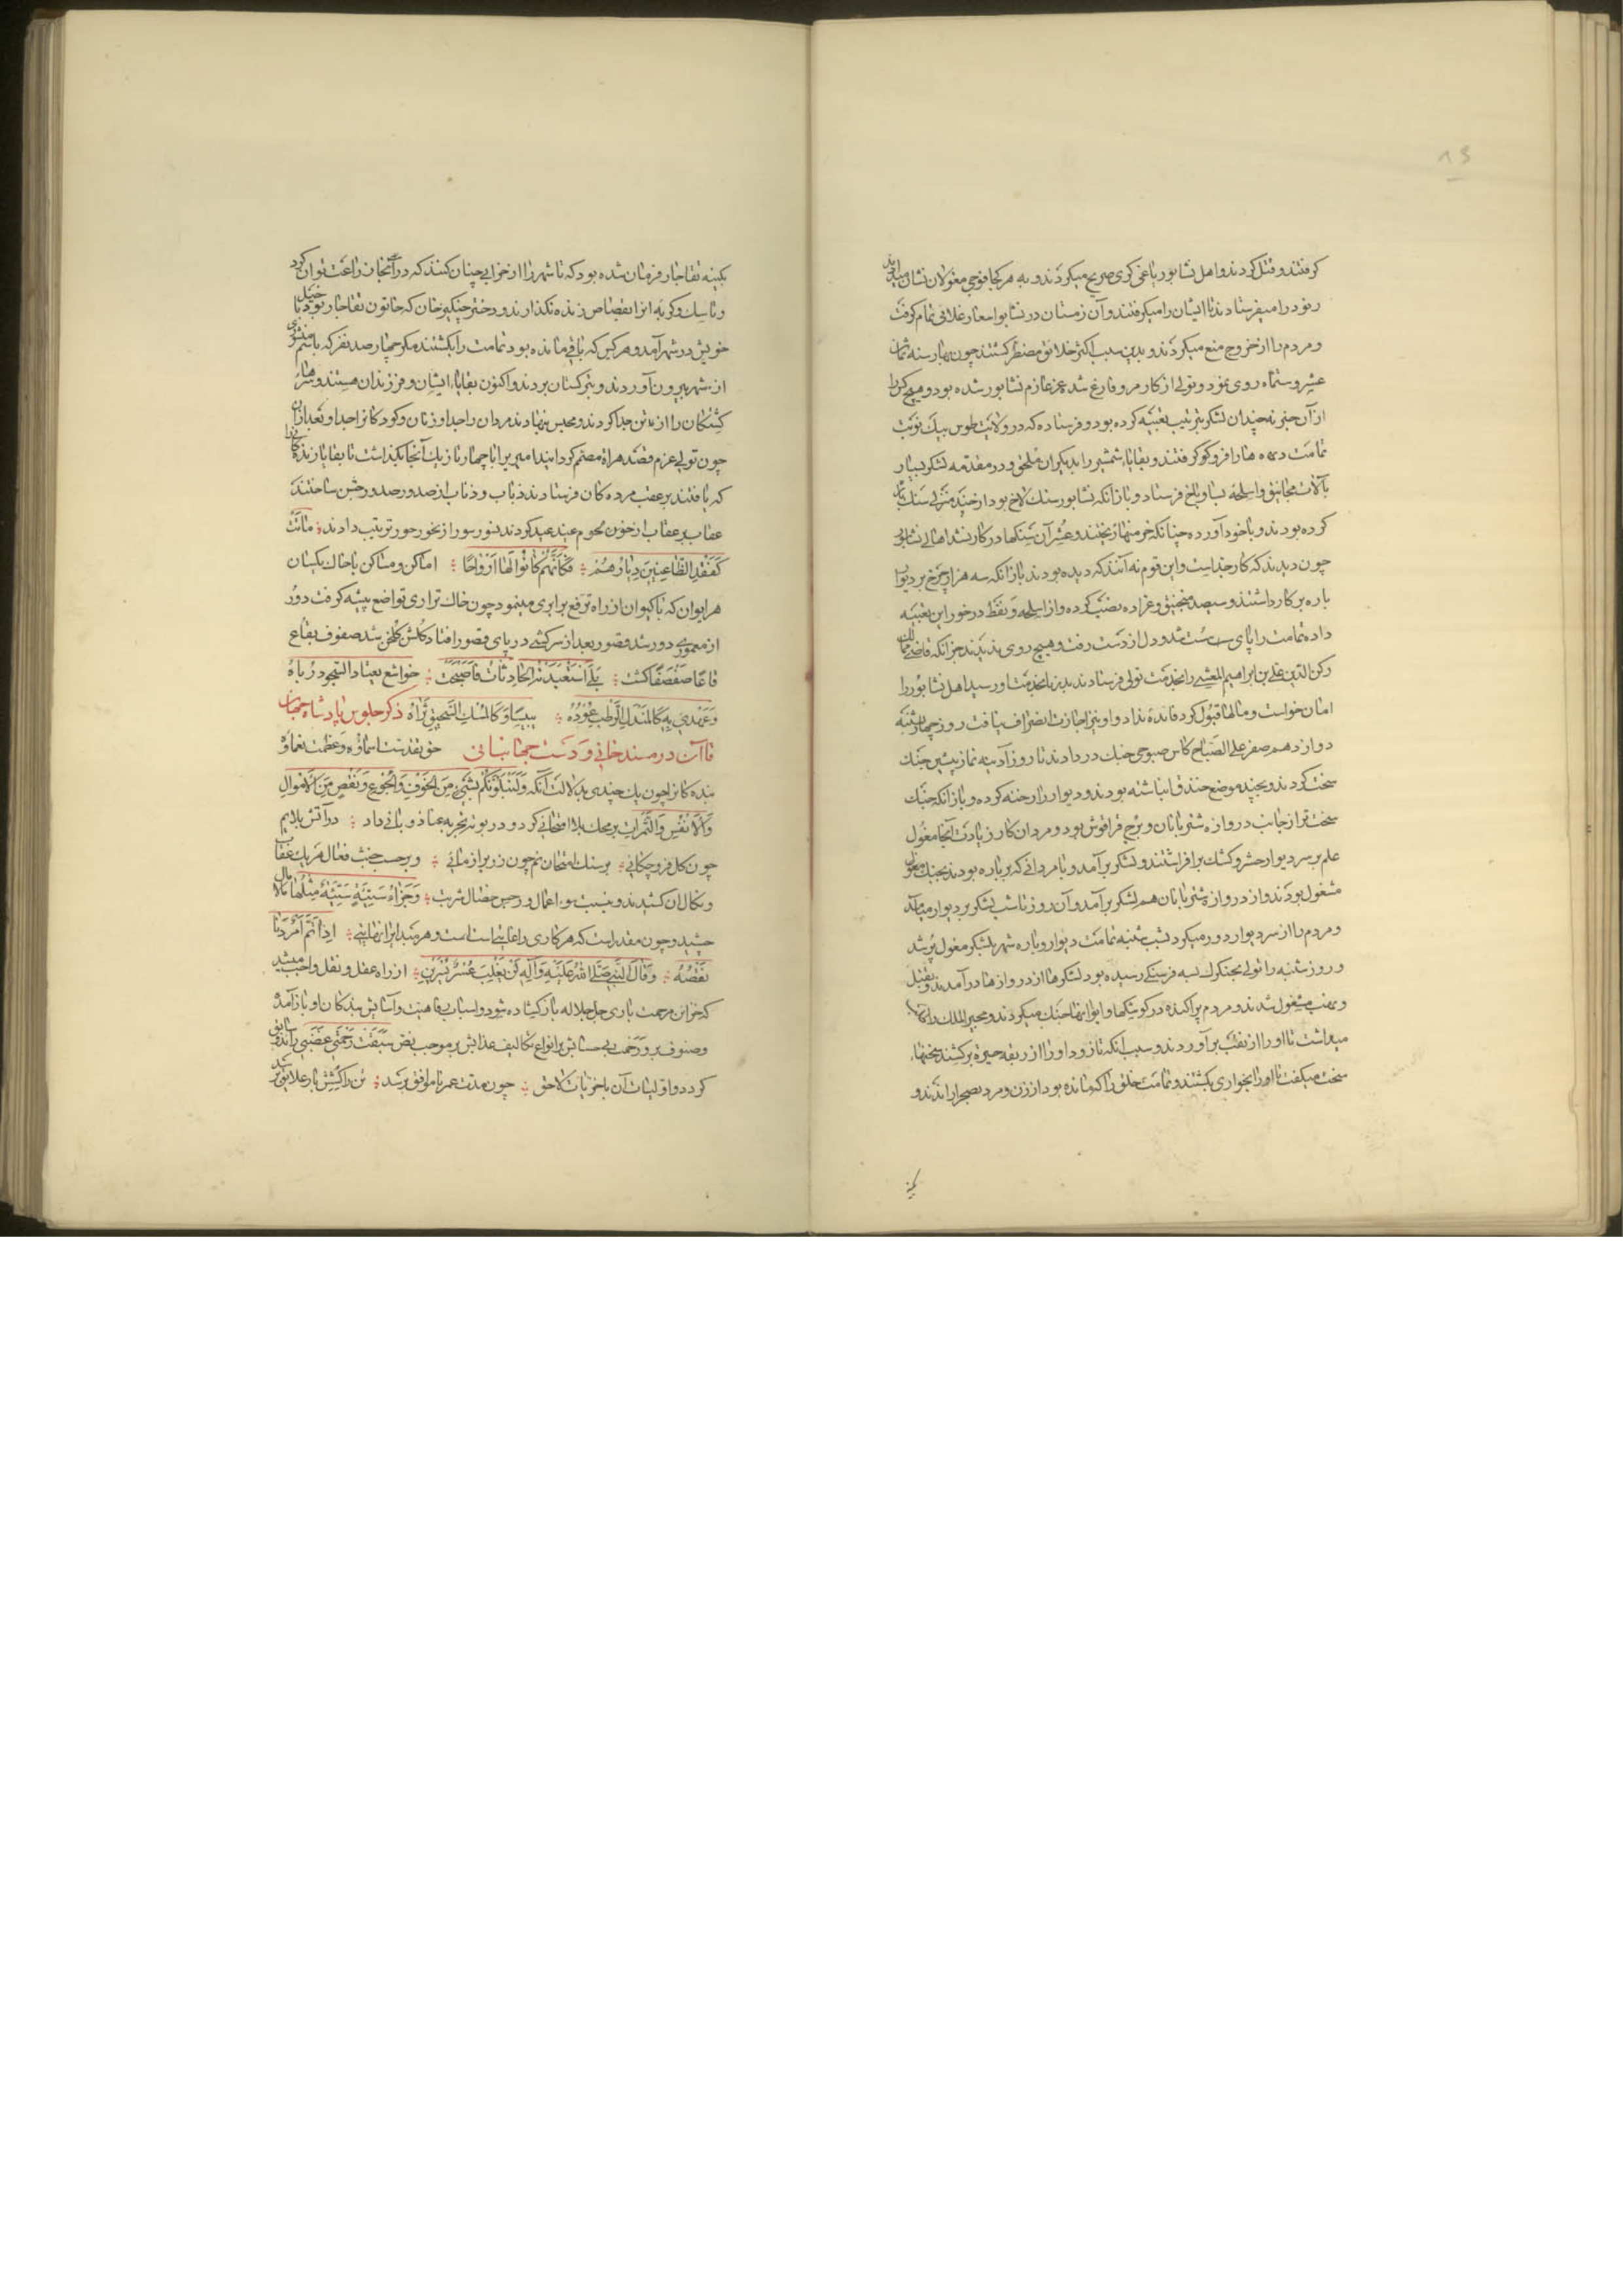 گرفتند و قتل کردند و اهل نشابور یاغی گری صریح میکردند و به هر کجا فوجی مغولان نشان میدادند
رنود را میفرستادند تا ایشان را میگرفتند و آن زمستان در نشابور اسعار غلائی تمام گرفت
و مردم را از خروج منع میکردند و بدین سبب اکثر خلایق مضطر گشتند چون بهار سنه ثمان
عشر و ستمایه روی نمود و تولی از کار مرو فارغ شد عزم عازم نشابور شده بود و هیچ کس را
از آن خبر نه چندان لشکر بترتیب تعبیه کرده بود و فرستاده که در ولایت طوس بیک نوبت
تمامت دیه ها را فرو گرفتند و بقایاء شمشیر را بدیگران ملحق و در مقدمه لشکر بسیار
با آلات مجانیق و اسلحه بشاوباخ فرستاد و باز آنکه نشابور سنگ لاخ بود از چند منزل سنگ بار
کرده بودند و با خود آورده چنانکه خرمنها ریختند و عشر آن سنگها در کار نشد اهالی نشابور
چون دیدند که کار جد است و این قوم نه آنند که دیده بودند باز آنکه سه هزار چرخ بر دیوار
باره بر کار داشتند و سیصد منجنیق و عراده نصب کرده و از اسلحه و نفط در خور این تعبیه
داده تمامت را پای سست شد و دل از دست رفت و هیچ روی ندیدند جز آنکه قاضی ممالک
رکن الدین علی بن ابراهیم المغیثی را بخدمت تولی فرستادند بدیشان بخدمت او رسید اهل نشابور را
امان خواست و مالها قبول کرد فائده نداد و او نیز اجازت انصراف نیافت روز چهارشنبه
دوازدهم صفر علی الصباح کاس صبوحی جنگ در دادند تا روز آدینه نماز پیشین جنگ
سخت کردند و بچند موضع خندق انباشته بودند و دیوار را رخنه کرده و باز آنکه جنگ
سخت تر از جانب دروازه شتربانان و برج قراقوش بود و مردان کار زیادت آنجا مغول
علم بر سر دیوار خسرو کوشک بر افراشتند و لشکر بر آمد و با مردانی که بر باره بودند بجنگ مغول
مشغول بودند و از دروازه شتربانان هم لشکر بر آمد و آن روز تا شب لشکر بر دیوار میآمد
و مردم را از سر دیوار دور میکرد شب شنبه تمامت دیوار و باره شهر بلشکر مغول پر شد
و روز شنبه را تولی بجنگرک بسه فرسنگی رسیده بود لشکرها از دروازها در آمدند و بقتل
و نهب مشغول شدند و مردم پراکنده در کوشکها و ایوانها جنگ میکردند و مجیر الملک را طلب
میداشت تا او را از نقب بر آوردند و سبب آنکه تا زودتر او را از ربقه حیوة بر کشند سخنهاء
سخت میگفت تا او را بخواری بکشتند و تمامت خلق را که مانده بود از زن و مرد بصحرا راندند و
بکینه
بکینه تغاجار فرمان شده بود که تا شهر را از خرابی چنان کنند که در آنجا زراعت توان کرد
و تا سگ و گربه آنرا بقصاص زنده نگذارند و دختر چنگیز خان که خاتون تغاجار بود با خیل
خویش در شهر آمد و هر کس که باقی مانده بود تمامت را بکشتند مگر چهار صد نفر که باسم پیشه وری
از شهر بیرون آوردند و بترکستان بردند و اکنون بقایاء ایشان و فرزندان هستند و سرهاء
کشتگان را از تن جدا کردند و مجلس بنهادند مردان را جدا و زنان و کودکان را جدا و بعد از آن
چون تولی عزم قصد هراة مصمم کرد امیری را با چهار تازیک آنجا بگذاشت تا بقایا زندگان را
که یافتند بر عقب مردگان فرستادند ذباب و ذئاب را از صدور صدور جشن ساختند
عقاب بر عقاب از لحوم عید کردند نسور سور از نحور حور ترتیب دادند ماتت
کفقد الظاعنین دیارهم فکانهم کانوا لها ارواحا اماکن و مساکن با خاک یکسان
هر ایوان که با کیوان از راه ترفع برابری مینمود چون خاک تراری تواضع پیشه گرفت دور
از معموری دور شد قصور بعد از سرکشی در پای قصور افتاد گلشن گلخن شد صفوف بقاع
قاعا صفصفا گشت بلی استعبدته الحادثات فاصبحت خواشع یعتاد السجود رباه
و عهدی به کالمندل الرطب عوده یبیسا و کالمسک السحیق ثراه ذکر جلوس پادشاه جهان
قاآن در مسند خانی و دست جهانبانی حق تقدست اسماؤه و عظمت نعماؤه
بندگانرا چون یک چندی بدلالت آنکه ولنبلونکم بشیء من الخوف والجوع ونقص من الاموال
والانفس والثمرات بر محک بلا امتحانی کرد و در بوته تجربه عنا ذوبانی داد در آتش بلایم
چون گل فرو چکانی بر سنگ امتحانم چون زر بر آزمائی و بر حسب خبث فعال هر یک عقاب
و نکال آن کشیدند و بنسبت سوء اعمال و رجس خصال شربت وجزاء سیئة سیئة مثلها مالامال
چشیدند و چون مقدر است که هر کاری را غایتی است و هر مبدأیرا نهایتی اذا تم امر دنا
نقصه و قال النبی صلی الله علیه وآله لن یغلب عسر یسرین از راه عقل و نقل واجب میشد
که خزائن مرحمت باری جل جلاله باز گشاده شود و اسباب رفاهیت و آسایش بندگان او باز آماده
و صنوف رحمت بی حسابش بر انواع تکالیف عذابش بر موجب نص سبقت رحمتی غضبی راند و سابق
گردد و اولیات آن باخریات لاحق چون مدت عمر نا موافق برسد تن را کشش بار علایق برسد